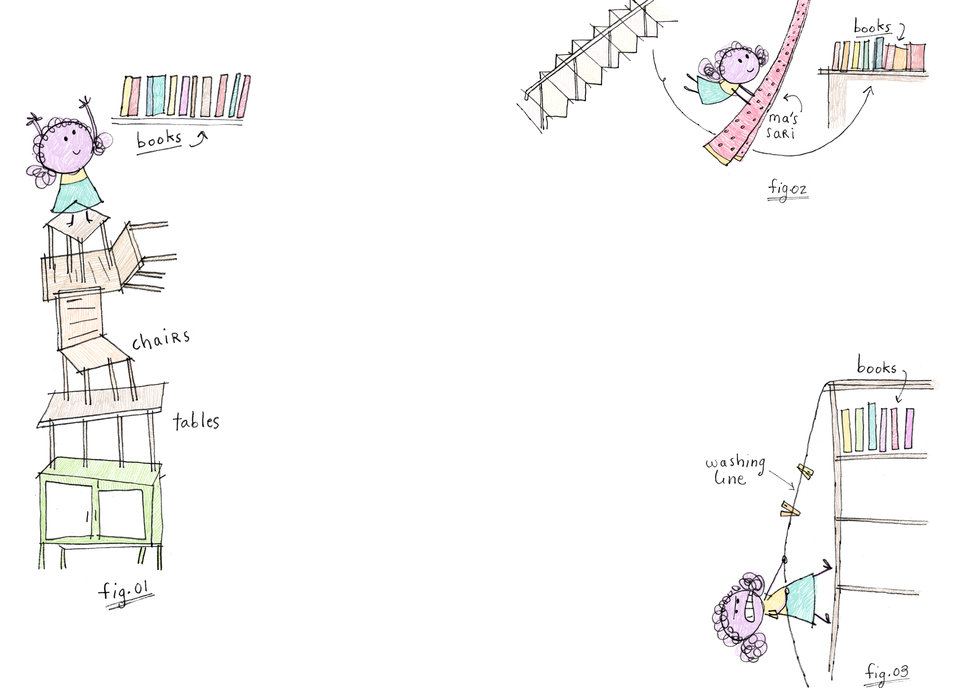 books
chairs
tables
fig.01
books
ma's
sari
fig02
books
washing
line
fig.03